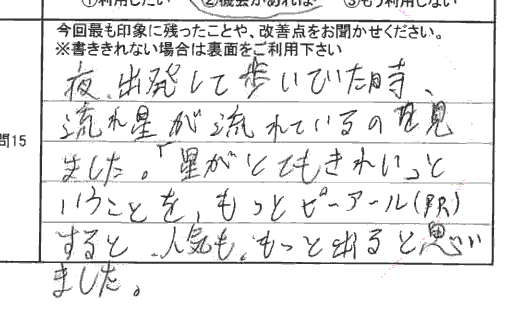 ①利用したい ②機会があれば ③もう利用しない
今回最も印象に残ったことや、改善点をお聞かせください。
※書ききれない場合は裏面をご利用下さい
問15
夜、出発して歩いていた時、
流れ星が流れているのを見
ました。「星がとてもきれい」と
いうことを、もっとピーアール(PR)
すると、人気も、もっと出ると思い
ました。